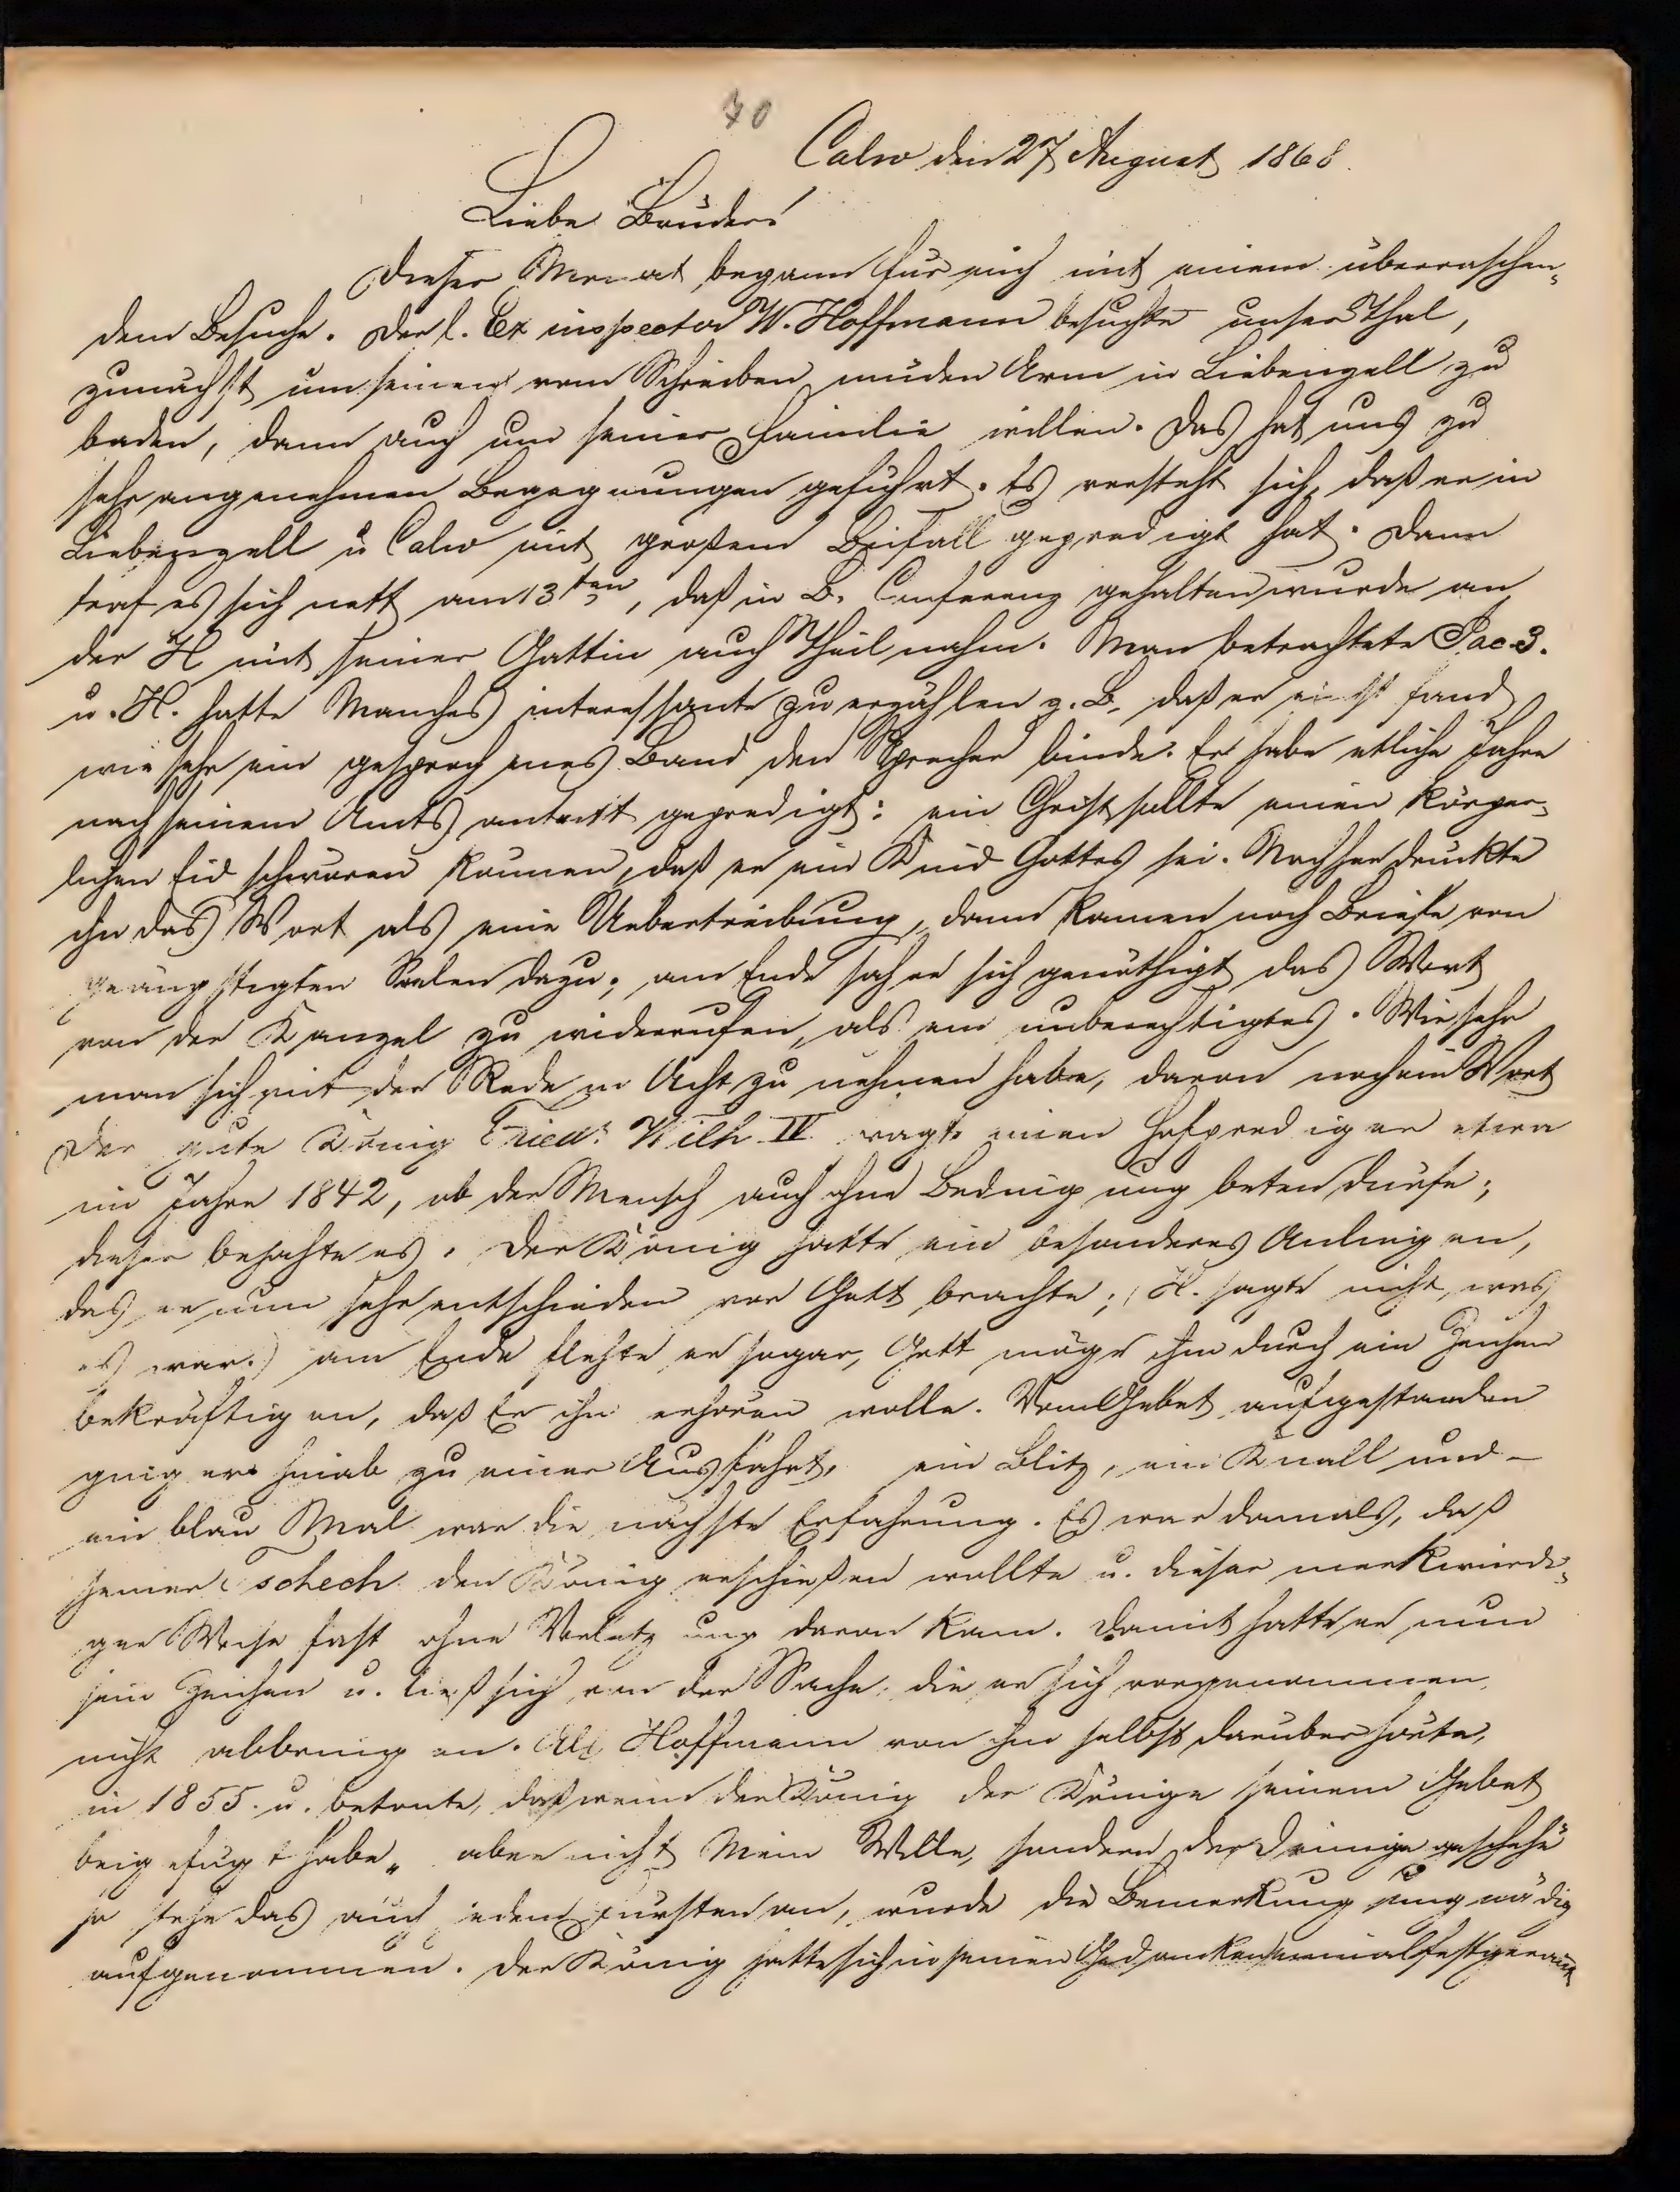 70
Calw den 27 August 1868.
Liebe Brüder!
Dieser Monat begann für mich mit einem überraschen-
dem Besuche. Der l. Ex inspector W. Hoffmann besuchte unser Thal,
zunächst um seinen vom Schreiben müden Arm in Liebenzell zu
baden, dann auch um seiner Familie willen. Das hat uns zu
sehr angenehmen Begegnungen geführt. Es versteht sich, daß er in
Liebenzell u Calw mit großem Beifall gepredigt hat. Dann
traf es sich nett am 13ten, daß in B. Conferenz gehalten wurde an
der H mit seiner Gattin auch Theil nahm. Man betrachtete Jac 3.
u. H. hatte Manches interessante zu erzählen z. B. daß er einst fand
wie sehr ein gesprochenes Band den Sprecher binde. Er habe etliche Jahre
nach seinem Amts antritt gepredigt: ein Christ sollte einen körper-
lichen Eid schwören können, daß er ein Kind Gottes sei. Nachher drückte
ihn das Wort als eine Uebertreibung, dann kamen noch Briefe von
geängstigten Seelen dazu; am Ende sah er sich genöthigt das Wort
von der Kanzel zu widerrufen, als ein unberechtigtes. Wie sehr
man sich mit der Rede in Acht zu nehmen habe, davon noch ein Wort
Der gute König Friedr. Wilh IV fragte einen Hofprediger etwa
im Jahre 1842, ob der Mensch auch ohne Bedingung beten dürfe;
dieser bejahte es. Der König hatte ein besonderes Anliegen,
das er nun sehr entschieden vor Gott brachte; (H. sagte nicht, was
es war.) am Ende flehte er sogar, Gott möge ihm durch ein Zeichen
bekräftigen, daß Er ihn erhören wolle. Vom Gebet aufgestanden
ging er hinab zu einer Ausfahrt, ein Blitz, ein Knall und -
ein blau Mal war die nächste Erfahrung. Es war damals, daß
jener Tschech den König erschießen wollte u. dieser merkwürdi-
ger Weise fast ohne Verletzung davon kam. Damit hatte er nun
sein Zeichen u. ließ sich von der Sache die er sich vorgenommen,
nicht abbringen. Als Hoffmann von ihm selbst darüber hörte,
in 1855. u. betonte, daß wenn der König der Könige seinem Gebet
beigefügt habe „ aber nicht Mein Wille, sondern der Deinige geschehe
so stehe das auch jedem Fürsten an, wurde die Bemerkung ungnädig
aufgenommen. Der König hatte sich in seinen Gedanken einmal festgerannt